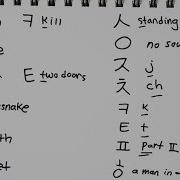 ㅋ kill
ㅌ two doors
snake
ㅅ standing
ㅇ no sou
ㅈ j
ㅊ ch
ㅋ k
ㅌ t
ㅍ part II
ㅎ a man in